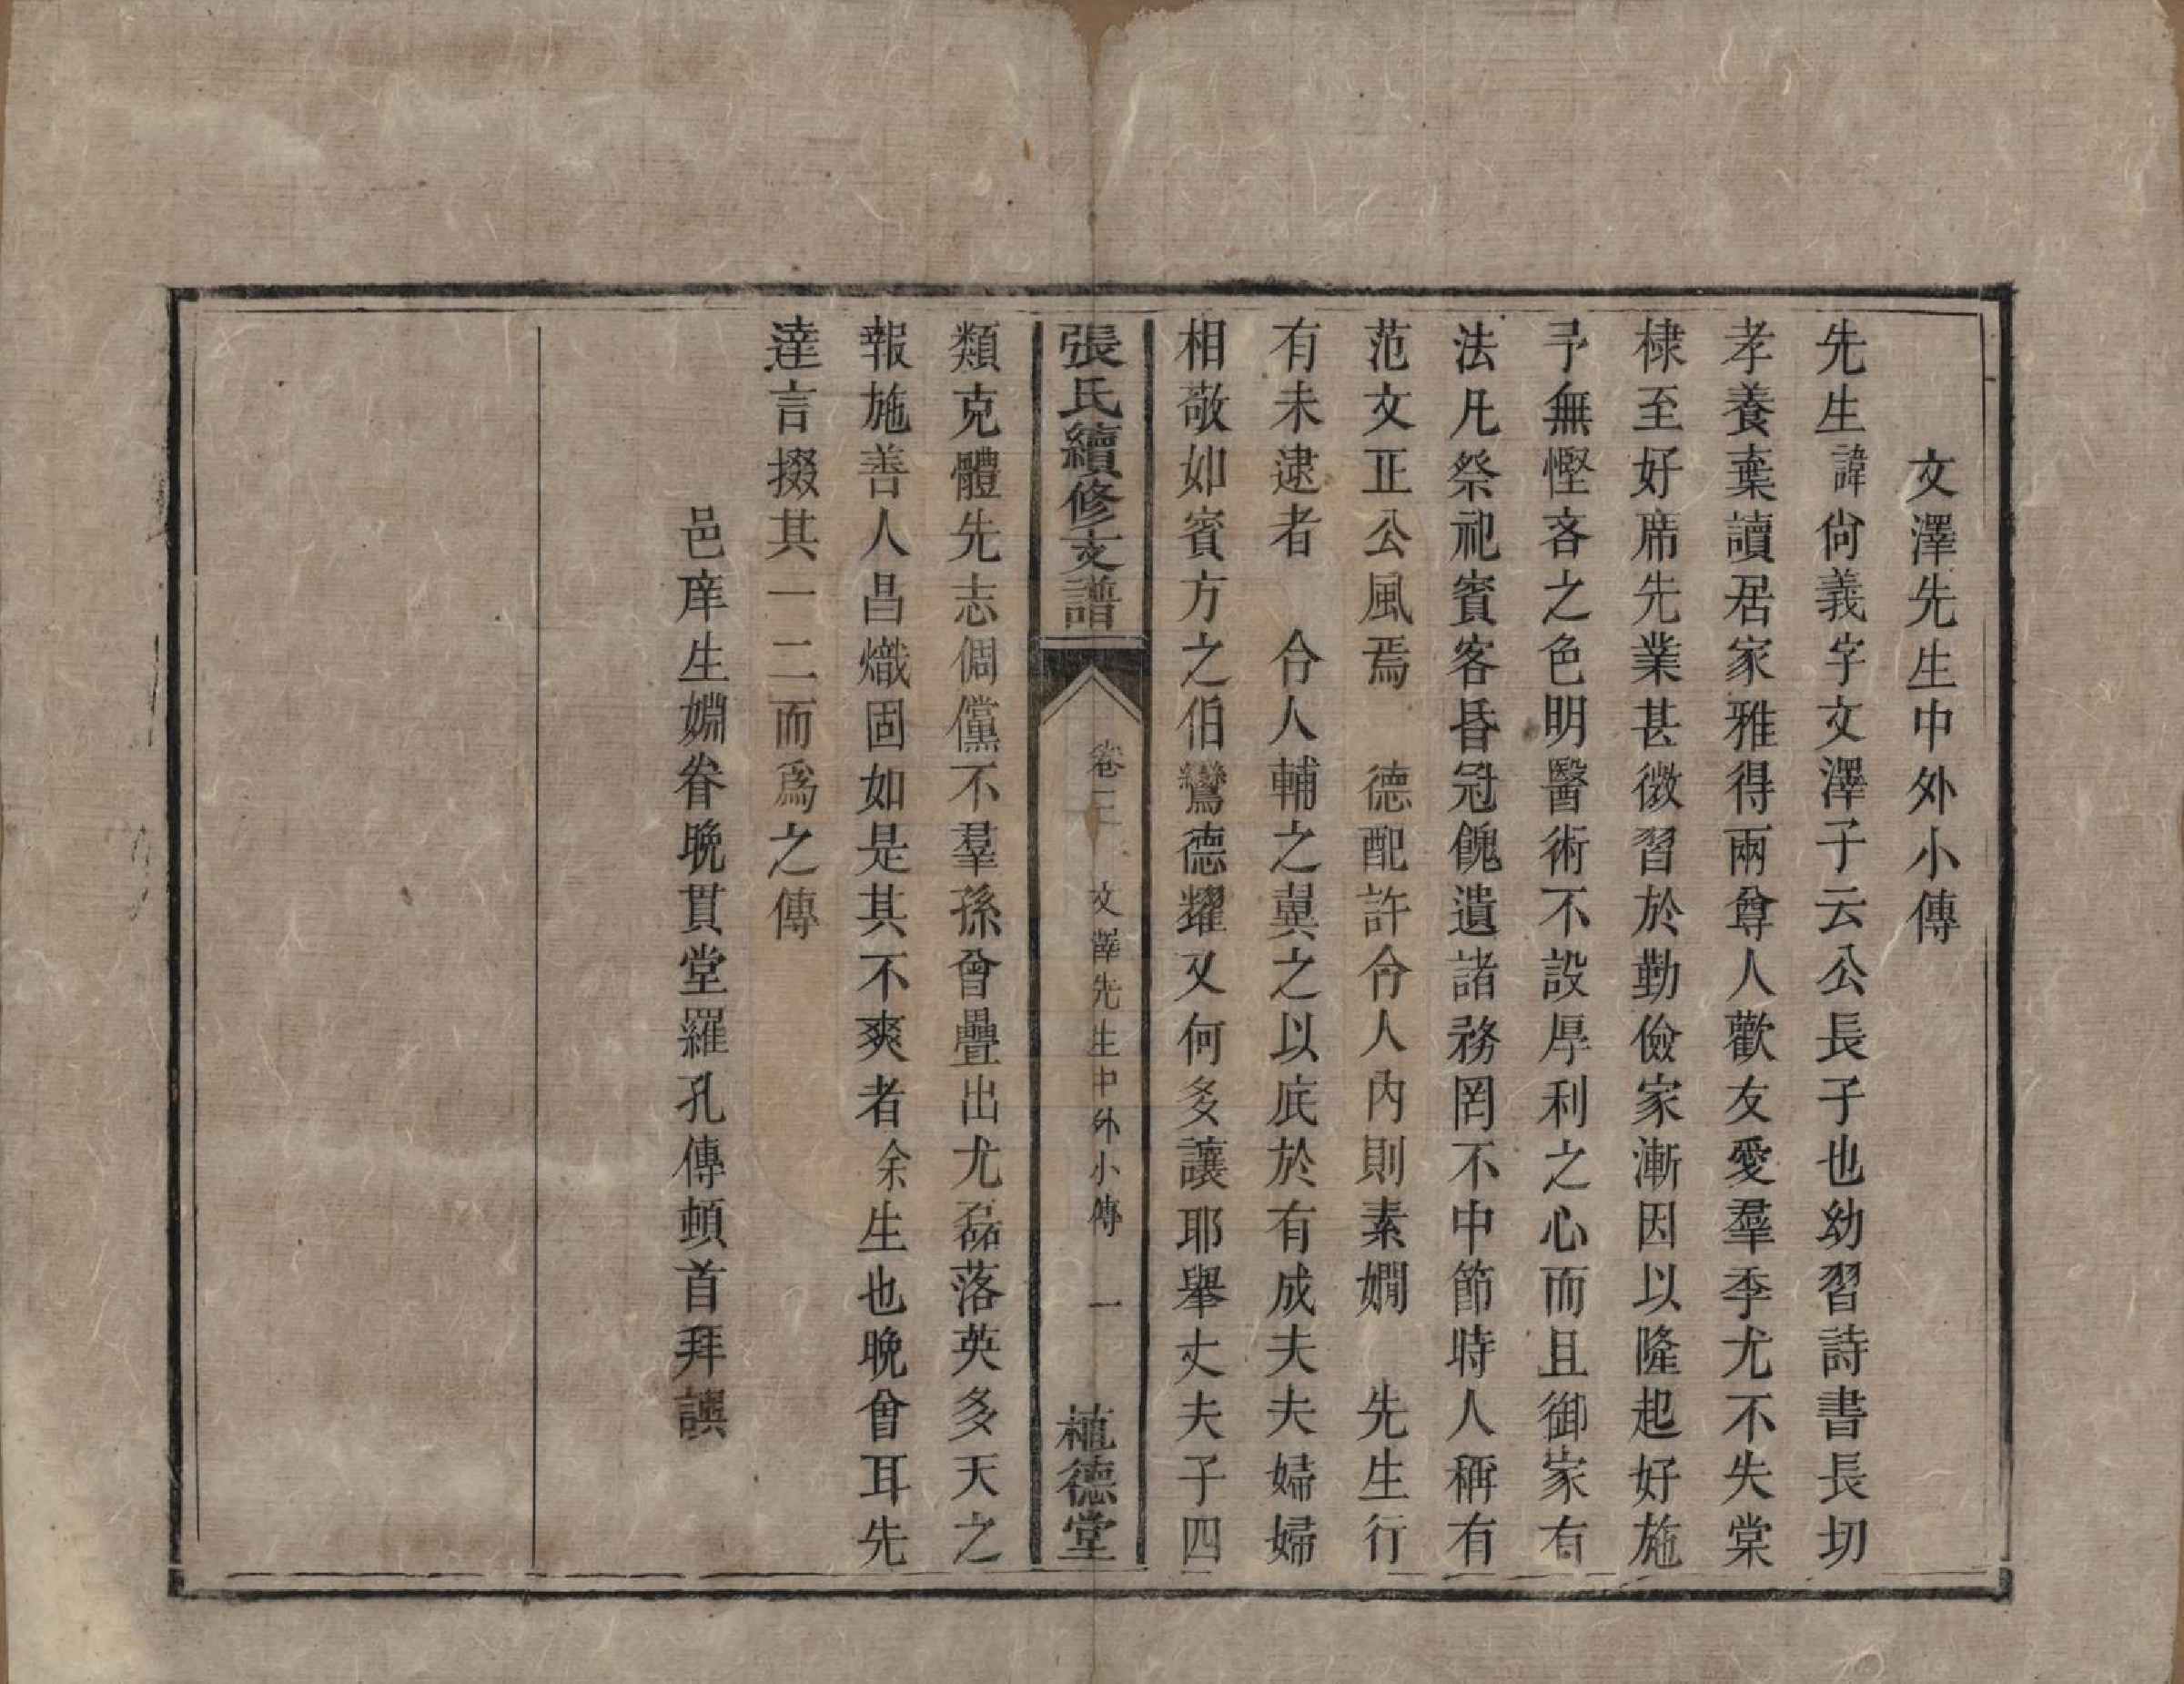 文澤先生中外小傳
先生諱尙義字文澤子云公長子也幼習詩書長切
孝養棄讀居家雅得兩尊人歡友愛羣季尤不失棠
棣至好席先業甚微習於勤儉家漸因以隆起好施
予無慳吝之色明醫術不設厚利之心而且御家有
法凡祭祀賓客昏冠餽遺諸務罔不中節時人稱有
范文正公風焉　德配許令人內則素嫻　先生行
有未逮者　令人輔之翼之以底於有成夫夫婦婦
相敬如賓方之伯鸞德耀又何多讓耶舉丈夫子四
張氏續修支譜
卷二
文澤先生中外小傳
一
植德堂
類克體先志倜儻不羣孫曾疊出尤磊落英多天之
報施善人昌熾固如是其不爽者余生也晚曾耳先
達言掇其一二而爲之傳
邑庠生姻眷晚貫堂羅孔傳頓首拜譔